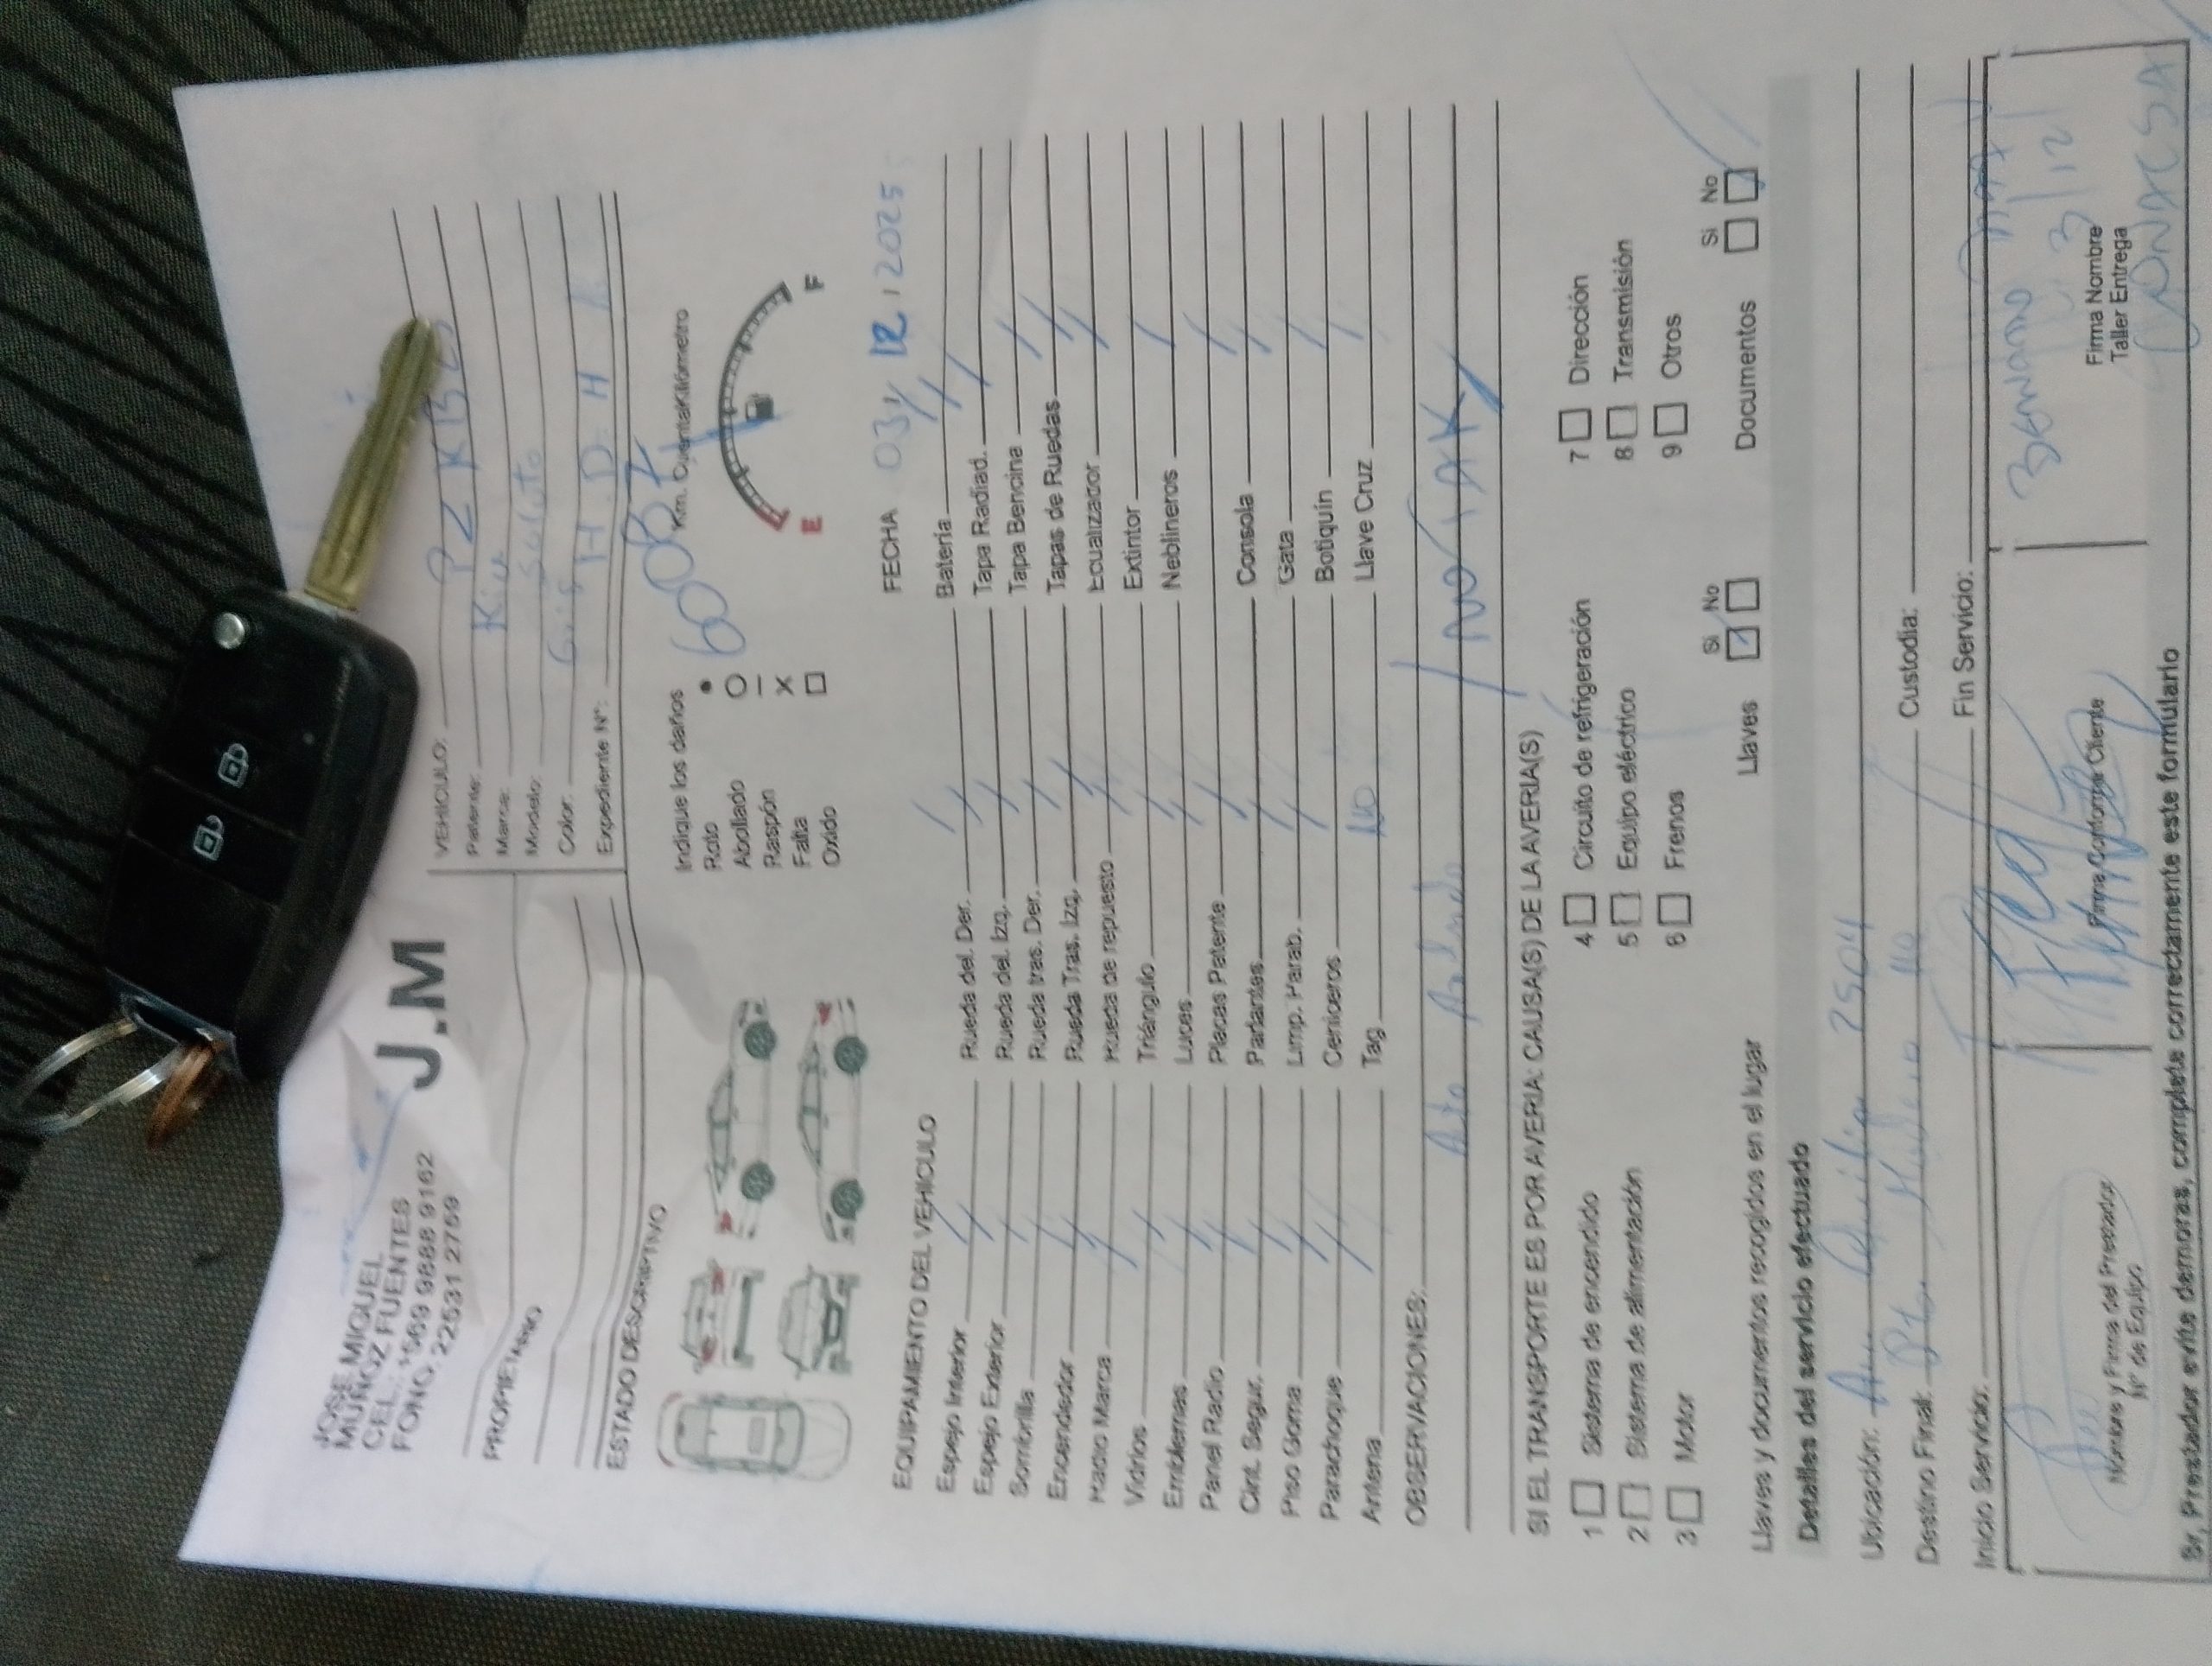 JOSE MIGUEL
MUÑOZ FUENTES
CEL.: +569 9888 9162
FONO: 22531 2769
J.M
VEHICULO:
Patente: PZ KB
Marca: Kia
Modelo: Soluto
Color: Gris
Expediente N°:
PROPIETARIO
ESTADO DESCRIPTIVO
Indique los daños
Roto
Abollado
Raspón
Falta
Oxido
Km. CuentaKilómetro
E
F
FECHA 03 / 12 / 2025
EQUIPAMIENTO DEL VEHICULO
Espejo Interior Rueda del. Der. Batería
Espejo Exterior Rueda del. Izq. Tapa Radiad.
Sombrilla Rueda tras. Der. Tapa Bencina
Encendedor Rueda Tras. Izq. Tapas de Ruedas
Radio Marca Rueda de repuesto Ecualizador
Vidrios Triángulo Extintor
Emblemas Luces Neblineros
Panel Radio Placas Patente
Cint. Segur. Parlantes Consola
Piso Goma Limp. Parab. Gata
Parachoque Ceniceros Botiquín
Antena Tag NO Llave Cruz
OBSERVACIONES:
Auto
SI EL TRANSPORTE ES POR AVERIA: CAUSA(S) DE LA AVERIA(S)
1 Sistema de encendido 4 Circuito de refrigeración 7 Dirección
2 Sistema de alimentación 5 Equipo eléctrico 8 Transmisión
3 Motor 6 Frenos 9 Otros
Si No Si No
Llaves y documentos recogidos en el lugar Llaves Documentos
Detalles del servicio efectuado
Ubicación: Av. 7504
Destino Final: Custodia:
Inicio Servicio: Fin Servicio:
3/12
Nombre y Firma del Prestador
N° de Equipo
Firma Conforme Cliente
Firma Nombre
Taller Entrega
Sr. Prestador evite demoras, complete correctamente este formulario